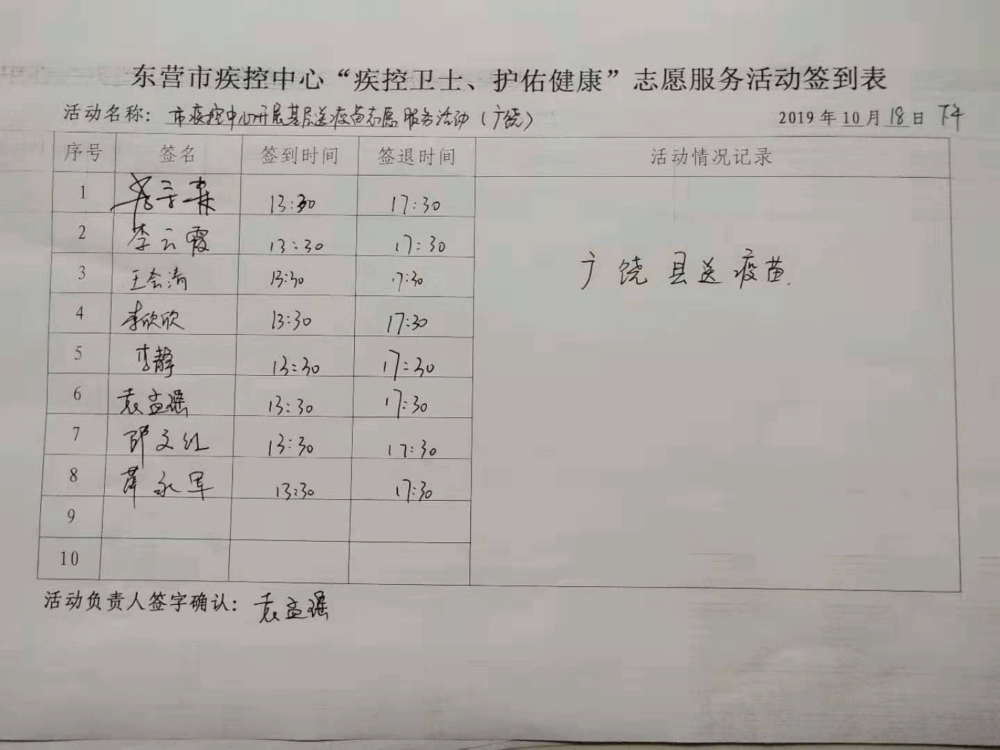 东营市疾控中心“疾控卫士、护佑健康”志愿服务活动签到表
活动名称：市疾控中心开展基层送疫苗志愿服务活动（广饶） 2019年10月18日 下午
序号 签名 签到时间 签退时间 活动情况记录
1 13:30 17:30
2 李云霞 13:30 17:30
3 王会清 13:30 17:30
4 李欣欣 13:30 17:30
5 李静 13:30 17:30
6 袁孟瑶 13:30 17:30
7 邱文红 13:30 17:30
8 薛永军 13:30 17:30
9
10
广饶县送疫苗.
活动负责人签字确认：袁孟瑶